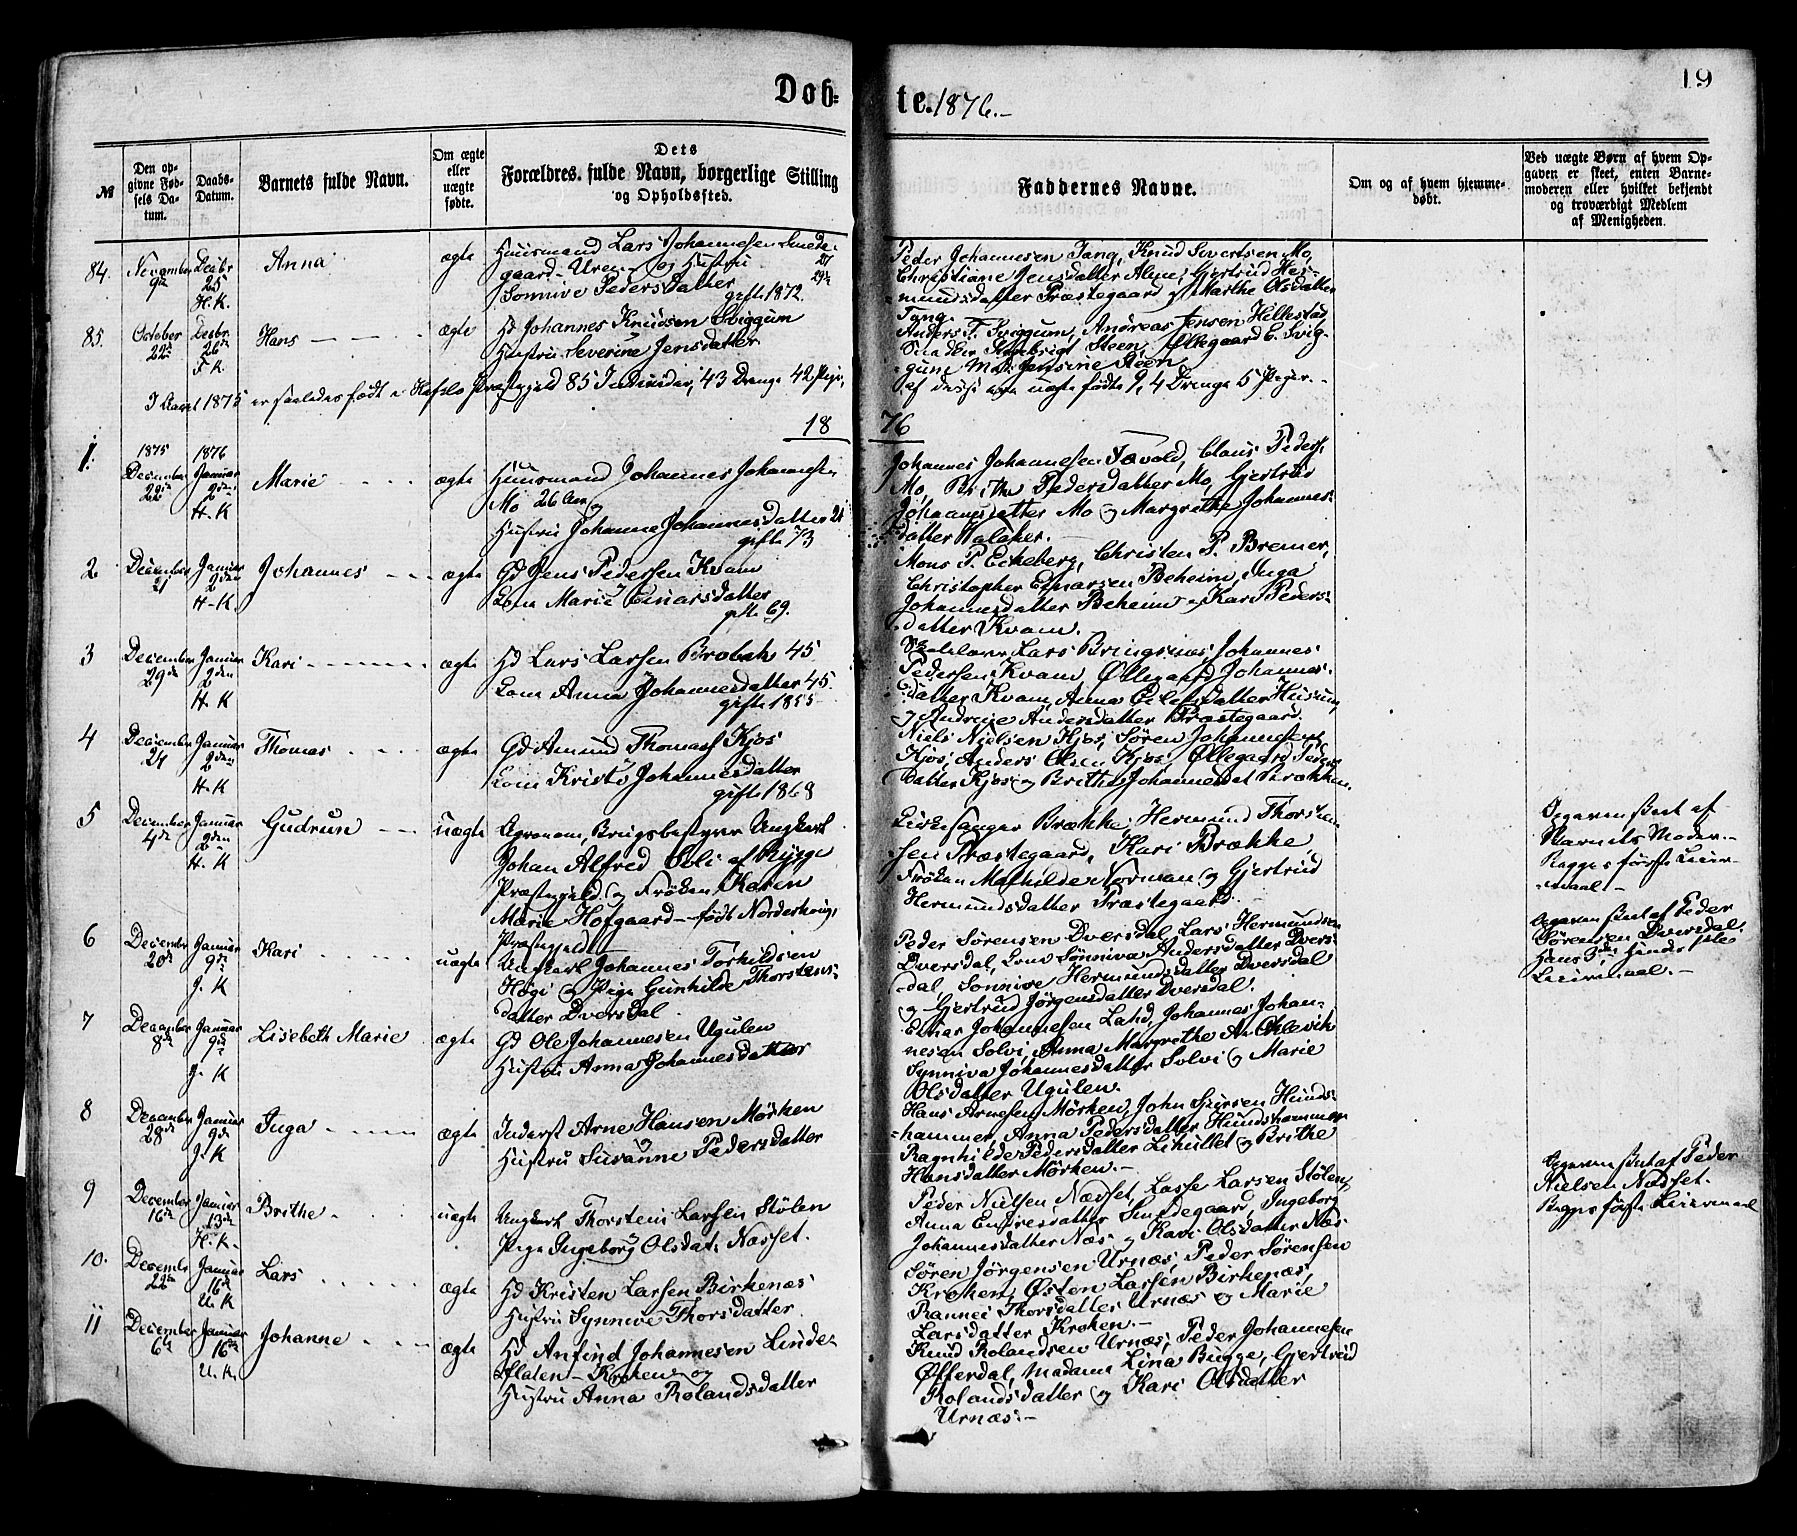 Døb=
te. 1876.-
19
№
Den op-
givne Fød-
sels Da-
tum.
Daabs-
Datum.
Barnets fulde Navn.
Om ægte
eller
uægte
fødte.
Dets
Forældres fulde Navn, borgerlige Stilling
og Opholdssted.
Faddernes Navne.
Om og af hvem hjemme-
døbt.
Ved uægte Børn af hvem Op-
gaven er skeet, enten Barne-
moderen eller hvilket bekjendt
og troværdigt Medlem
af Menigheden.
84.
November
9de
Decbr
25
H.K.
Anna
ægte
Huusmand Lars Johannesen Smede-
gaard-Uren og Hustru
Sønnive Pedersdatter
gifte 1872.
Peder Johannesen Tang, Knud Sivertsen Mo,
Christiane Jensdatter Alme, Gjertrud Her-
mundsdatter Præstegaard og Marthe Olsdatter
Tang.
85.
October
22de
Decbr
26de
F.K.
Hans
ægte
Gd Johannes Knudsen Sviggum
Hustru Severine Jensdatter
Anders T. Sviggum, Andreas Jensen Hillestad,
Steen, Øllegaard E. Svig-
gum, Mad. Jensine Steen
I Aaret 1875 er saaledes født i Hafslo Præstegjeld 85 Individer, 43 Drenge 42 Piger,
af disse ere uægte fødte 9, 4 Drenge 5 Piger.
18 76
1.
1875
December
22de
1876
Januar
2den
H.K
Marie
ægte
Huusmand Johannes Johannesen
Mo 26 Aar og
Hustru Johanne Johannesdatter 21
gifte 73
Johannes Johannesen Tævold, Claus Peders.
Mo, Brithe Pedersdatter Mo, Gjertrud
Johannesdatter Mo og Margrethe Johannes-
datter Valaker.
2
December
21
Januar
2den
H-K
Johannes
ægte
Gd Jens Pedersen Kvam
Kone Marie Einarsdatter
gifte 69.
Mons P. Eikeberg, Christen P. Bremer,
Christopher Einarsen Beheim, Inga
Johannesdatter Beheim og Kari Peders-
datter Kvam.
3
December
29de
Januar
2den
H-K
Kari
ægte
Hd Lars Larsen Brobak 45
Kone Anna Johannesdatter 45.
gifte 1855
Skolelærer Lars Bringsnæs, Johannes
Pedersen Kvam, Øllegaard Johannes-
datter Kvam, Anna Eilefsdatter Husum,
og Andrine Andersdatter Præstegaard.
4
December
24
Januar
2den
H-K
Thomas
ægte
Gd Amund Thomass Kjos
Kone Kristi Johannesdatter
gifte 1868
Niels Nielsen Kjos, Søren Johannesen
Kjos, Anders Olsen Kjos, Øllegaard Peders-
datter Kjos og Brithe Johannesdat Brække.
5
December
4de
Januar
2den
H-K
Gudrun
uægte
Agronom, Brugsbestyrer Ungkarl
Johan Alfred Soli af Rygge
Præstegjeld og Frøken Karen
Marie Hofgaard - født Norderhoug
Præstegjeld
Kirkesanger Brække, Hermund Thorsten-
sen Præstegaard, Kari Brække,
Frøken Mathilde Norman og Gjertrud
Hermundsdatter Præstegaard.
Opgaven skeet af
Barnets Moder.-
Begges første Leier-
maal-
6
December
20de
Januar
9de
J.K
Kari
uægte
Ungkarl Johannes Torkildsen
Høgi og Pige Gunhilde Thorstens-
datter Dversdal
Peder Sørensen Dversdal, Lars Hermundsen
Dversdal, Kone Sønniva Andersdatter Dvers-
dal, Sønnive Hermundsdatter Dversdal
og Gjertrud Jørgensdatter Dversdal.
Opgaven skeet af Peder
Sørensen Dversdal.
Hans 3die, Hendes 1ste
Leiermaal.-
7
December
8de
Januar
9de
J.K
Lisebeth Marie
ægte
Gd Ole Johannesen Ugulen
Hustru Anna Johannesdatter
Einar Johannesen Land, Johannes Johan-
nesen Solvi, Anna Margrethe A. Eklevik
Synniva Johannesdatter Solvi og Marie
Olsdatter Ugulen.
8
December
28de
Januar
9de
J.K
Inga
ægte
Inderst Arne Hansen Mørken
og
Hustru Susanne Pedersdatter
Hans Arnesen Mørken, John Sjursen Hunds-
hammer, Anna Pedersdatter Hundshammer
Ragnhilde Pedersdatter Lihullet og Brithe
Hansdatter Mørken.-
9
December
16de
Januar
13de
H.K.
Brithe
uægte
Ungkarl Thorsten Larsen Stølen
Pige Ingeborg Olsdat. Næsset.
Peder Nielsen Næsset, Lasse Larsen Stølen,
Anna Endresdatter Smedegaard, Ingeborg
Johannesdatter Næs og Kari Olsdatter Næs
Opgaven skeet af Peder
Nielsen Næsset.
Begges første Leiermaal
10.
December
22de
Januar
16de
U.K
Lars
ægte
Hd Kristen Larsen Birkenæs
Hustru Synneve Thorsdatter
Søren Jørgensen Urnæs, Peder Sørensen
Kroken, Østen Larsen Birkenæs,
Rannei Thorsdatter Urnæs og Marie
Larsdatter Kroken.-
11
December
6te
Januar
16de
U.K.
Johanne
ægte
Hd Anfind Johannesen Linde-
flaten - Kroken og
Hustru Anna Rolandsdatter
Knud Rolandsen Urnæs, Peder Johannesen
Offerdal, Madam Lina Bugge, Gjertrud
Rolandsdatter og Kari Olsdatter
Urnæs.-